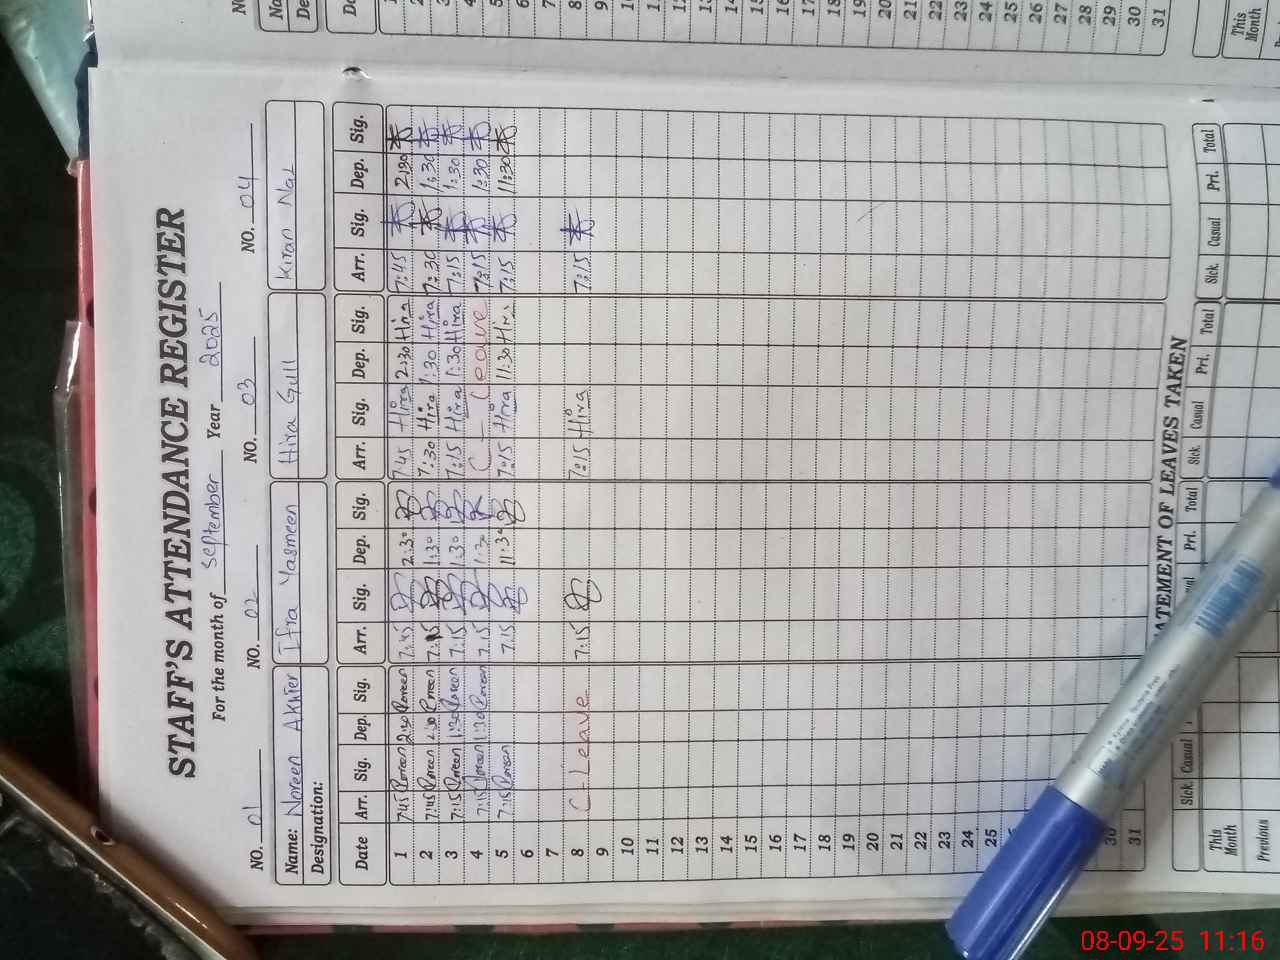 STAFF'S ATTENDANCE REGISTER
For the month of September Year 2025
NO. 01 NO. 02 NO. 03 NO. 04
Name: Noreen Akhter Ifra Yasmeen Hira Gull Kiran Naz
Designation:
Date Arr. Sig. Dep. Sig. Arr. Sig. Dep. Sig. Arr. Sig. Dep. Sig. Arr. Sig. Dep. Sig.
1 7:45 2:30 7:45 2:30 7:45 Hira 2:30 Hira 7:45 2:30
2 7:45 1:30 7:15 1:30 7:30 Hira 1:30 Hira 7:30 1:30
3 7:15 1:30 7:15 1:30 7:15 Hira 1:30 Hira 7:15 1:30
4 7:15 1:30 7:15 1:30 C - Leave 7:15 1:30
5 7:15 7:15 11:30 7:15 Hira 11:30 Hira 7:15 11:30
6
7
8 C - Leave 7:15 7:15 Hira 7:15
9
10
11
12
13
14
15
16
17
18
19
20
21
22
23
24
25
30
31
ATEMENT OF LEAVES TAKEN
Sick Casual Pri. Total Sick Casual Pri. Total Sick Casual Pri. Total
This Month
Previous
08-09-25 11:16